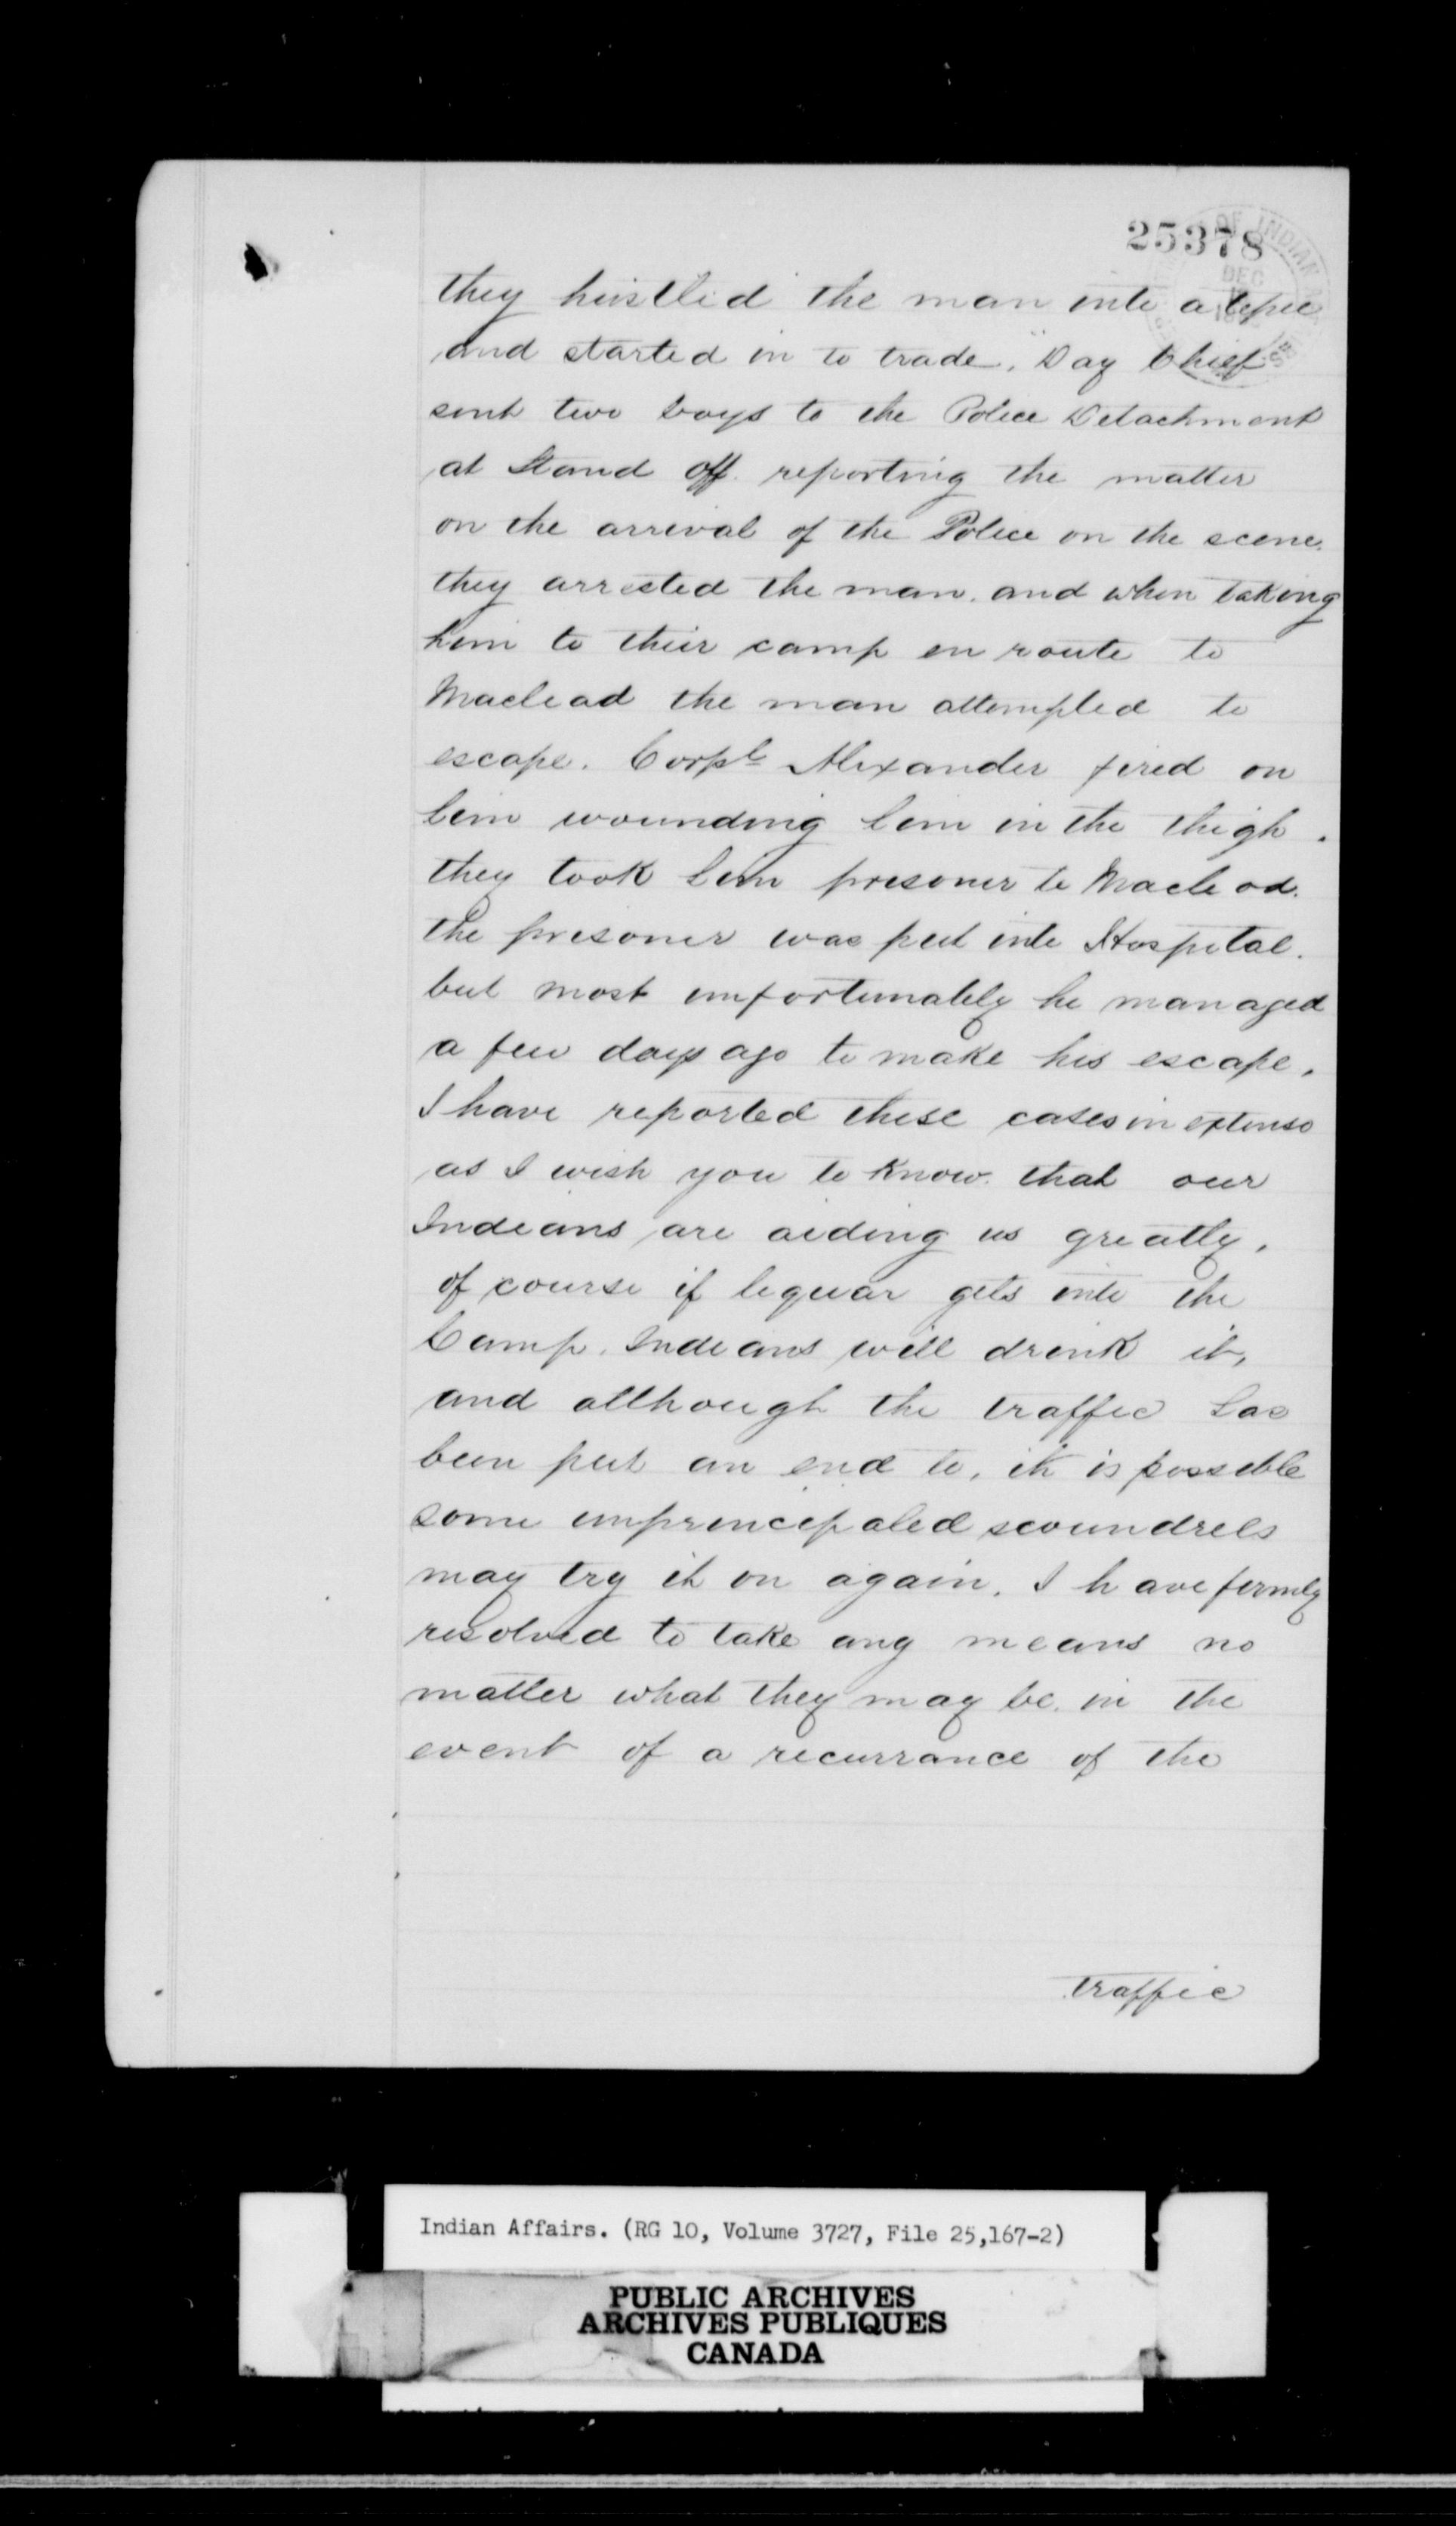 25378
OF INDIAN
DEC
they hustled the man into a tepee
and started in to trade. "Day Chief
sent two boys to the Police Detachment
at Stand off. reporting the matter
on the arrival of the Police on the scene.
they arrested the man. and when taking
him to their camp en route to
Macleod the man attempted to
escape. Corpl Alexander fired on
him wounding him in the thigh.
they took him prisoner to Macleod.
the prisoner was put into Hospital.
but most unfortunately he managed
a few days ago to make his escape.
I have reported these cases in extenso
as I wish you to know. that our
Indians are aiding us greatly.
of course if liquor gets into the
Camp. Indians will drink it,
and although the traffic has
been put an end to, it is possible
some unprincipaled scoundrels
may try it on again. I have firmly
resolved to take any means no
matter what they may be. in the
event of a recurrance of the
traffic
Indian Affairs. (RG 10, Volume 3727, File 25,167-2)
PUBLIC ARCHIVES
ARCHIVES PUBLIQUES
CANADA